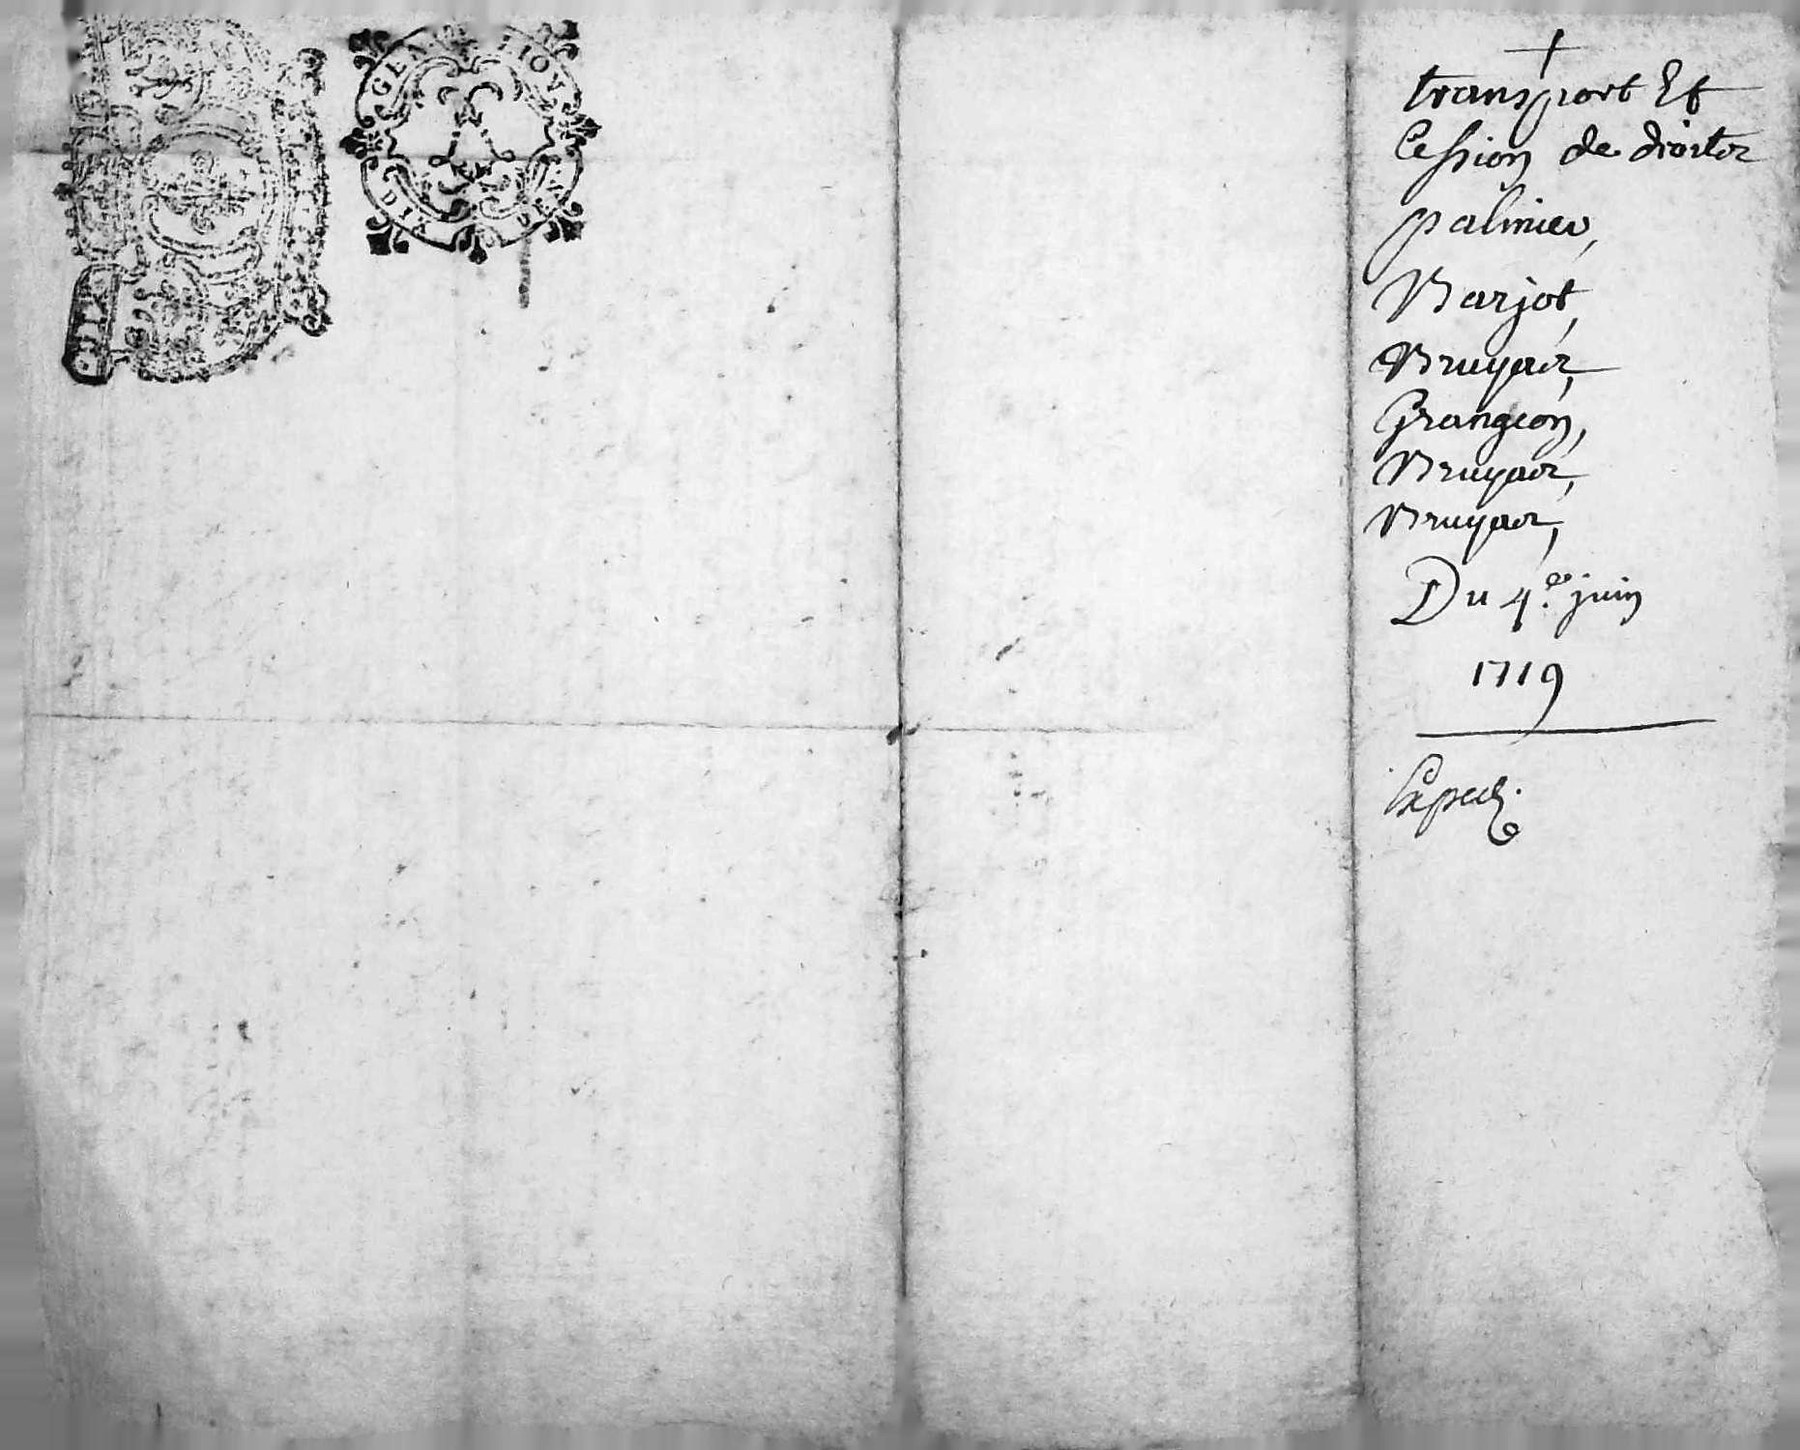 GEN
DIX DEN
+
transport Et
Cession de droits
palmier,
Barjot,
Bruyas,
Grangeon,
Bruyas,
Bruyas,
Du 4.e juin
1719
Exped.